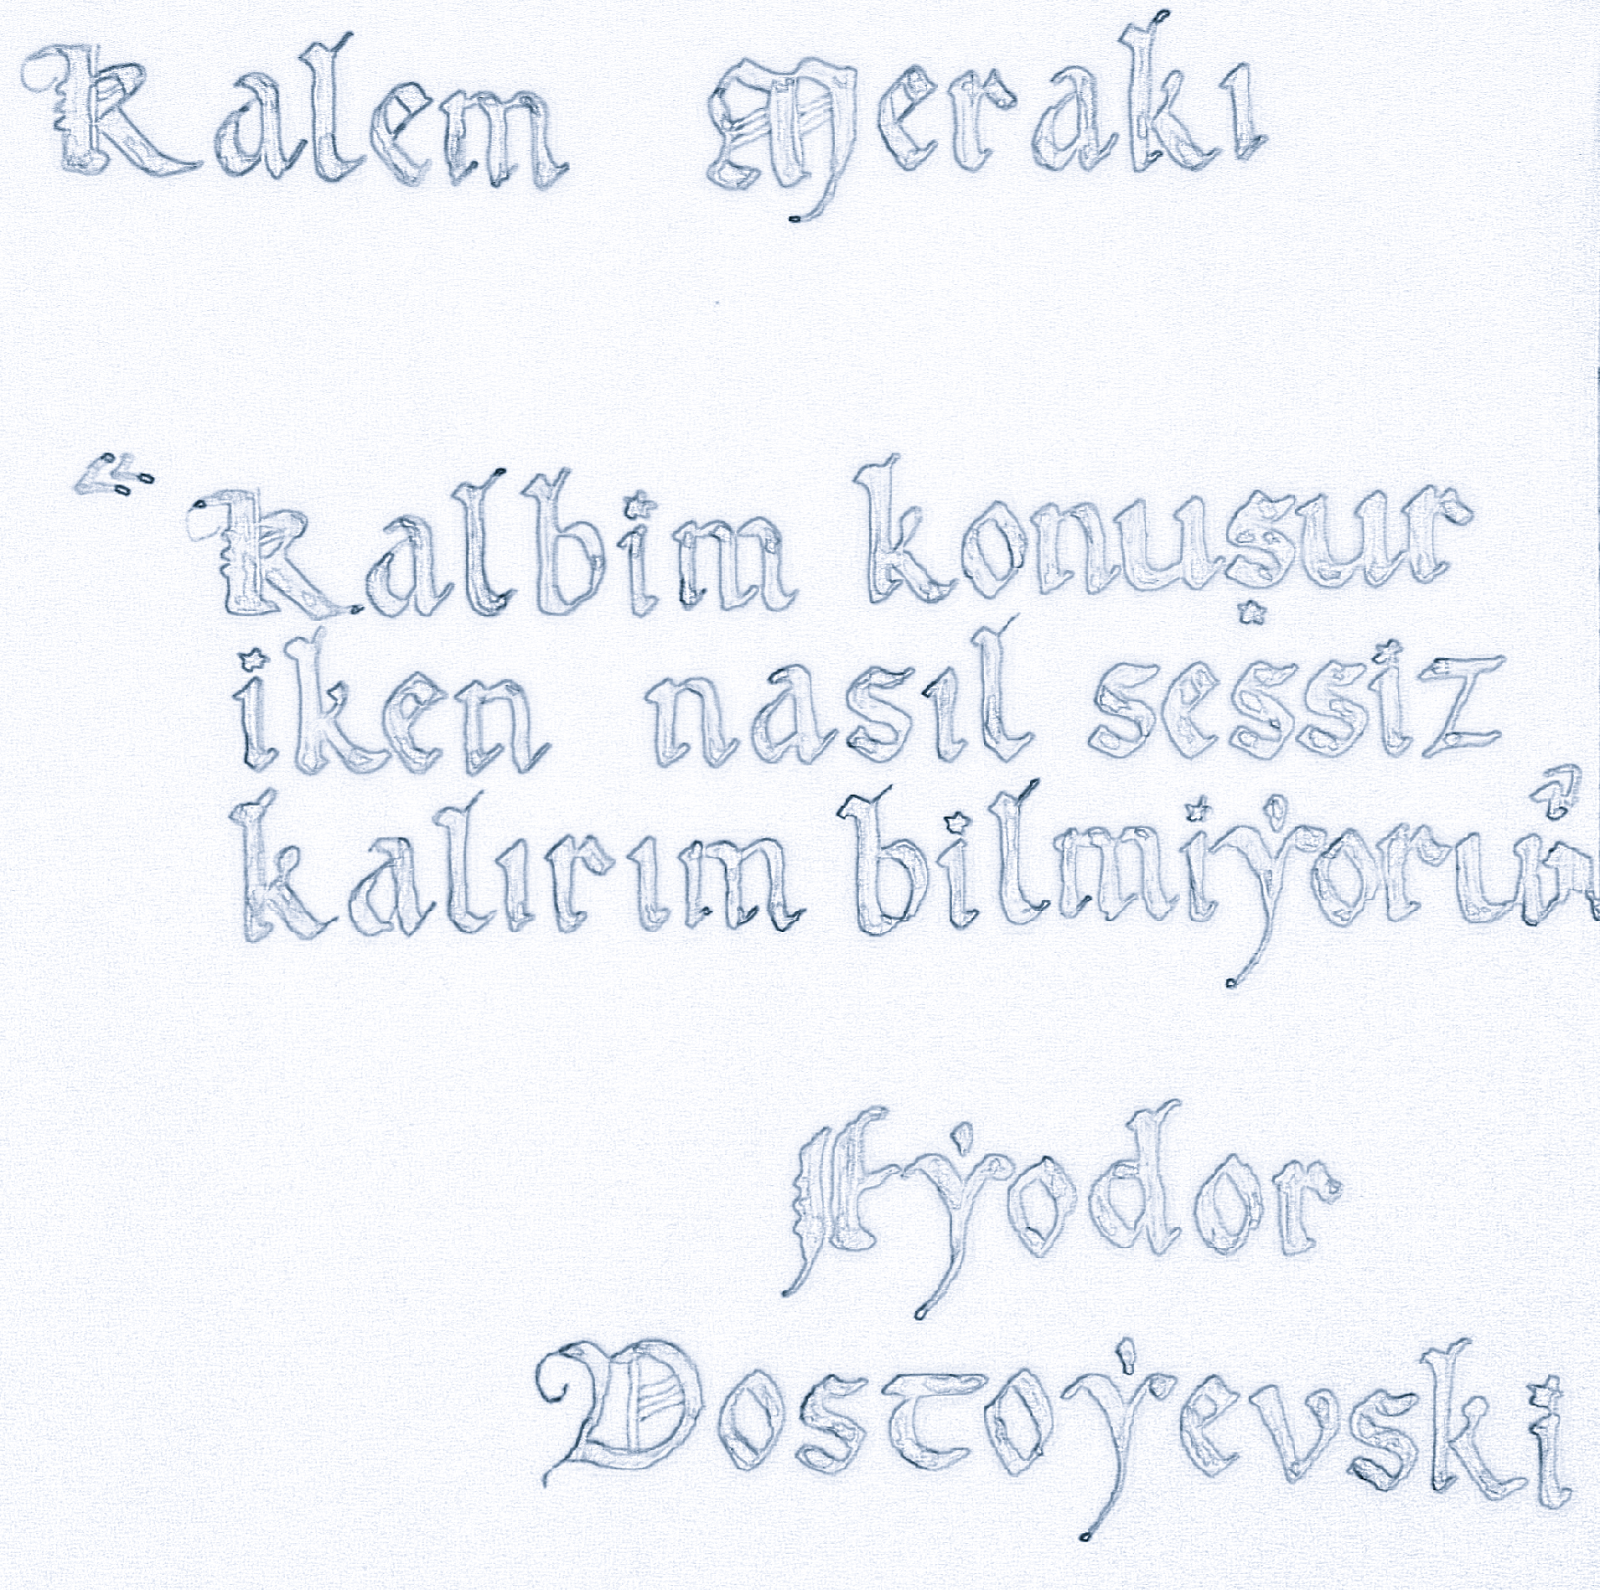 Kalem Merakı
“Kalbim konuşur
iken nasıl sessiz
kalırım bilmiyorum”
Fyodor
Dostoyevski